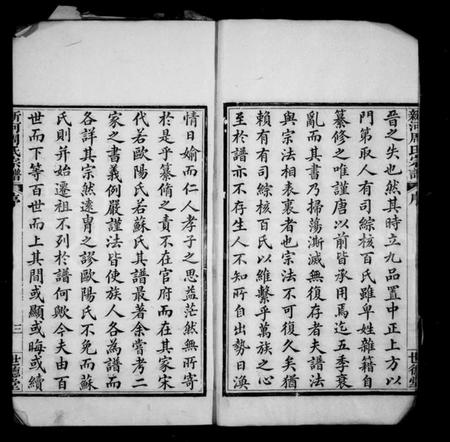 新河周氏宗譜
序
世德堂
晉之失也然其時立九品置中正上方以
門第取人有司綜核百氏雖卑姓雜籍自
纂修之唯謹唐以前皆承用焉迄五季衰
亂而其書乃掃蕩澌滅無復存者夫譜法
與宗法相表裏者也宗法不可復久矣猶
賴有有司綜核百氏以維繫乎萬族之心
至於譜亦不存生人不知所自出勢日渙
情日媮而仁人孝子之思益茫然無所寄
於是乎纂脩之責不在官府而在其家宋
代若歐陽氏若蘇氏其譜最著余嘗考二
家之書義例嚴謹法皆使族人各為譜而
各詳其宗然遠冑之謬歐陽氏不免而蘇
氏則并始遷祖不列於譜何歟今夫由百
世而下等百世而上其間或顯或晦或續
新河周氏宗譜
序
三
世德堂